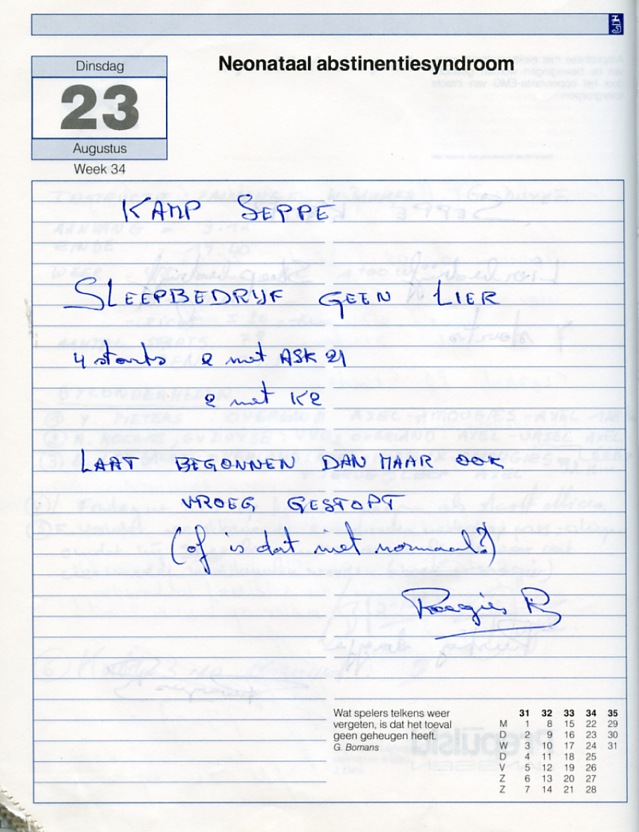 Dinsdag
23
Augustus
Week 34
Neonataal abstinentiesyndroom
KAMP SEPPE
SLEEPBEDRIJF GEEN LIER
4 starts 2 met ASK 21
2 met K2
LAAT BEGONNEN DAN MAAR OOK
VROEG GESTOPT
(of is dat niet normaal?)
Wat spelers telkens weer
vergeten, is dat het toeval
geen geheugen heeft.
G. Bomans
31 32 33 34 35
M 1 8 15 22 29
D 2 9 16 23 30
W 3 10 17 24 31
D 4 11 18 25
V 5 12 19 26
Z 6 13 20 27
Z 7 14 21 28